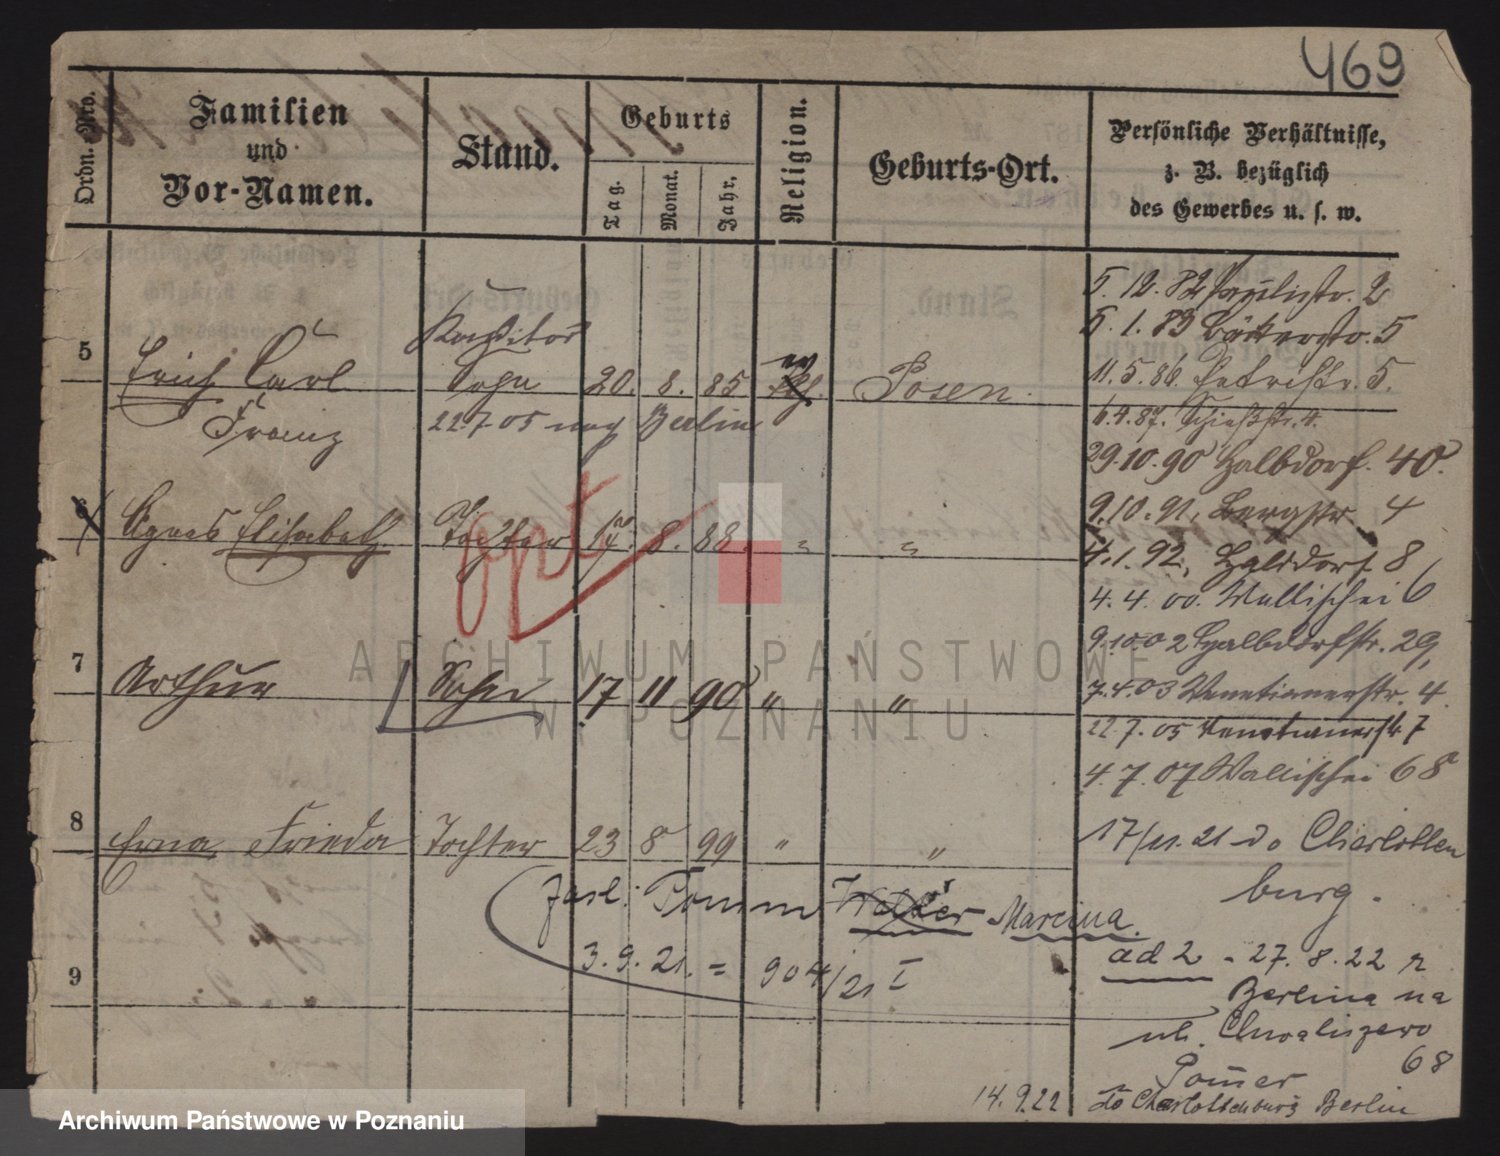 469
Ordn. Nro.
Familien
und
Vor-Namen.
Stand.
Geburts
Tag.
Monat.
Jahr.
Religion.
Geburts-Ort.
Persönliche Verhältnisse,
z. B. bezüglich
des Gewerbes u. s. w.
5. 12. 82 2
5. 1. 83 Bäckerstr. 5
Konditor
5 Erich Carl Sohn 20. 8. 85 ev Posen
11. 5. 86. Petristr. 5.
Franz 22 7 05 nach Berlin
6. 4. 87. Schießstr. 4.
29. 10. 90 Halbdorf. 40.
6 Agnes Elisabeth Tochter 8. 88. " "
9. 10. 91. Bergstr. 4
opt
4. 1. 92, Halbdorf 8
4. 4. 00. Wallischei 6
9. 10. 02 Halbdorfstr. 29,
7 Arthur Sohn 17 11 90 " "
7. 4. 03 Venetianerstr. 4.
22. 7. 05 Venetianerstr 7
4. 7. 07 Wallischei 68
8 Erna Frieda Tochter 23 8 99 " "
17/11. 21 do Charlotten
burg.
Marcina.
3. 9. 21. = 904/21 I
9
ad 2 - 27. 8. 22 z
Berlina na
ul. Chwaliszewo
68
14. 9 22 do Charlottenburg Berlin
ARCHIWUM PAŃSTWOWE
W POZNANIU
Archiwum Państwowe w Poznaniu